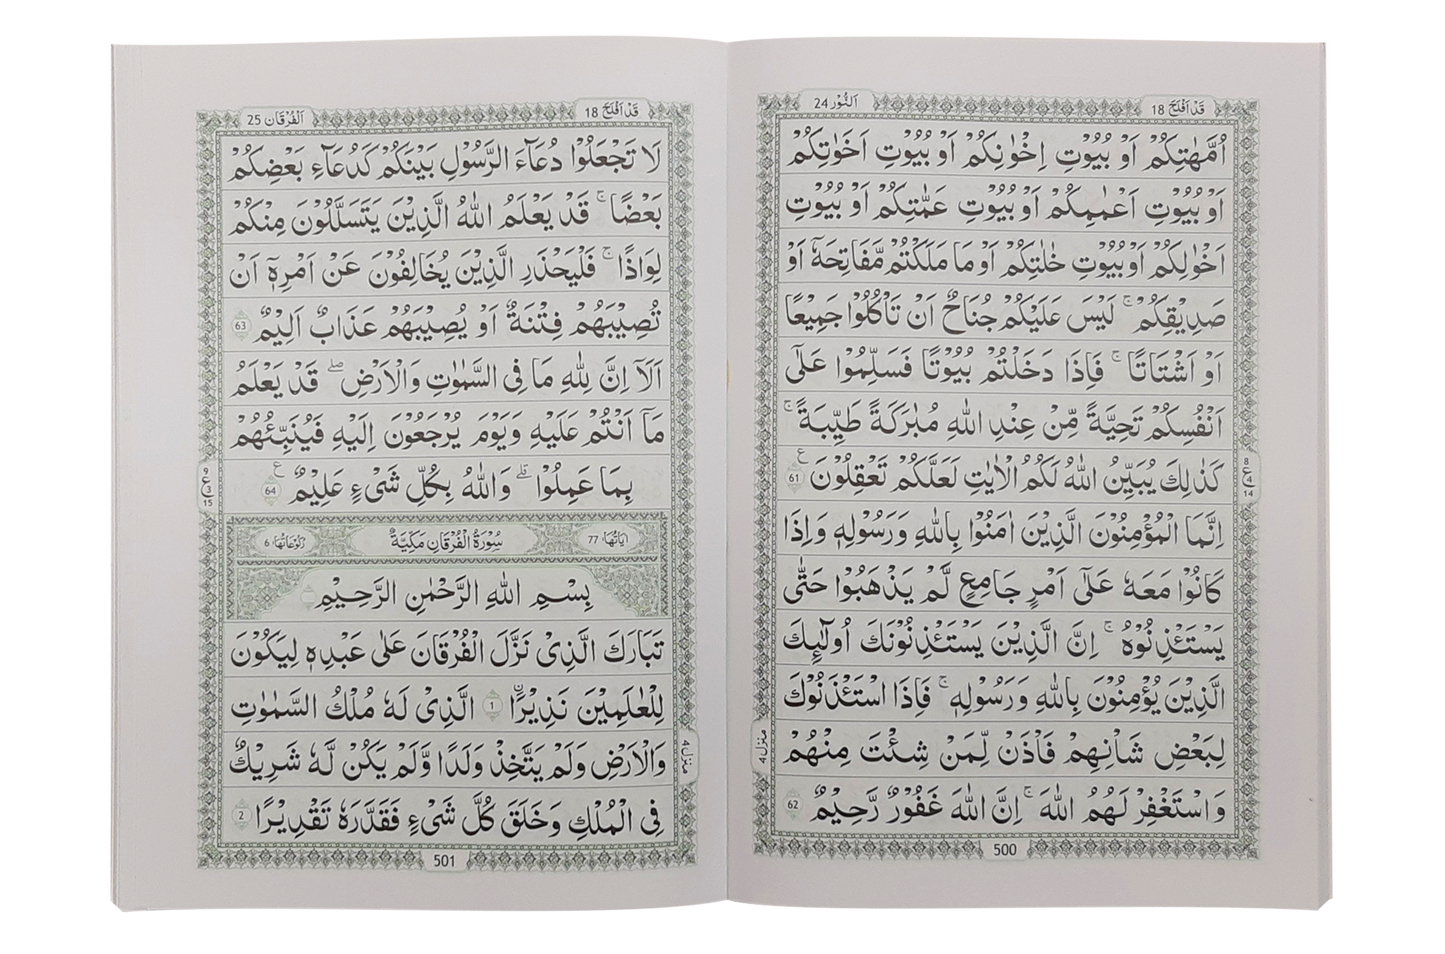 قَدْ اَفْلَحَ 18
اَلنُّوْر 24
اُمَّهٰتِكُمْ اَوْ بُيُوْتِ اِخْوَانِكُمْ اَوْ بُيُوْتِ اَخَوٰتِكُمْ
اَوْ بُيُوْتِ اَعْمَامِكُمْ اَوْ بُيُوْتِ عَمّٰتِكُمْ اَوْ بُيُوْتِ
اَخْوَالِكُمْ اَوْ بُيُوْتِ خٰلٰتِكُمْ اَوْ مَا مَلَكْتُمْ مَّفَاتِحَهٗٓ اَوْ
صَدِيْقِكُمْ ۚ لَيْسَ عَلَيْكُمْ جُنَاحٌ اَنْ تَاْكُلُوْا جَمِيْعًا
اَوْ اَشْتَاتًا ۚ فَاِذَا دَخَلْتُمْ بُيُوْتًا فَسَلِّمُوْا عَلٰٓى
اَنْفُسِكُمْ تَحِيَّةً مِّنْ عِنْدِ اللّٰهِ مُبٰرَكَةً طَيِّبَةً ۚ
كَذٰلِكَ يُبَيِّنُ اللّٰهُ لَكُمُ الْاٰيٰتِ لَعَلَّكُمْ تَعْقِلُوْنَ 61 ع
8 ع 4 14
اِنَّمَا الْمُؤْمِنُوْنَ الَّذِيْنَ اٰمَنُوْا بِاللّٰهِ وَرَسُوْلِهٖ وَاِذَا
كَانُوْا مَعَهٗ عَلٰٓى اَمْرٍ جَامِعٍ لَّمْ يَذْهَبُوْا حَتّٰى
يَسْتَئْذِنُوْهُ ۚ اِنَّ الَّذِيْنَ يَسْتَئْذِنُوْنَكَ اُولٰٓئِكَ
الَّذِيْنَ يُؤْمِنُوْنَ بِاللّٰهِ وَرَسُوْلِهٖ ۚ فَاِذَا اسْتَئْذَنُوْكَ
لِبَعْضِ شَاْنِهِمْ فَاْذَنْ لِّمَنْ شِئْتَ مِنْهُمْ
منزل ٤
وَاسْتَغْفِرْ لَهُمُ اللّٰهَ ۚ اِنَّ اللّٰهَ غَفُوْرٌ رَّحِيْمٌ 62
500
قَدْ اَفْلَحَ 18
اَلْفُرْقَان 25
لَا تَجْعَلُوْا دُعَآءَ الرَّسُوْلِ بَيْنَكُمْ كَدُعَآءِ بَعْضِكُمْ
بَعْضًا ۚ قَدْ يَعْلَمُ اللّٰهُ الَّذِيْنَ يَتَسَلَّلُوْنَ مِنْكُمْ
لِوَاذًا ۚ فَلْيَحْذَرِ الَّذِيْنَ يُخَالِفُوْنَ عَنْ اَمْرِهٖٓ اَنْ
تُصِيْبَهُمْ فِتْنَةٌ اَوْ يُصِيْبَهُمْ عَذَابٌ اَلِيْمٌ 63
اَلَآ اِنَّ لِلّٰهِ مَا فِى السَّمٰوٰتِ وَالْاَرْضِ ۖ قَدْ يَعْلَمُ
مَآ اَنْتُمْ عَلَيْهِ وَيَوْمَ يُرْجَعُوْنَ اِلَيْهِ فَيُنَبِّئُهُمْ
بِمَا عَمِلُوْا ۗ وَاللّٰهُ بِكُلِّ شَىْءٍ عَلِيْمٌ 64 ع
9 ع 3 15
اٰيَاتُهَا: 77
سُوْرَةُ الْفُرْقَانِ مَكِّيَّةٌ
رُكُوْعَاتُهَا: 6
بِسْمِ اللّٰهِ الرَّحْمٰنِ الرَّحِيْمِ
تَبَارَكَ الَّذِىْ نَزَّلَ الْفُرْقَانَ عَلٰى عَبْدِهٖ لِيَكُوْنَ
لِلْعٰلَمِيْنَ نَذِيْرًا 1 الَّذِىْ لَهٗ مُلْكُ السَّمٰوٰتِ
وَالْاَرْضِ وَلَمْ يَتَّخِذْ وَلَدًا وَّلَمْ يَكُنْ لَّهٗ شَرِيْكٌ
منزل ٤
فِى الْمُلْكِ وَخَلَقَ كُلَّ شَىْءٍ فَقَدَّرَهٗ تَقْدِيْرًا 2
501